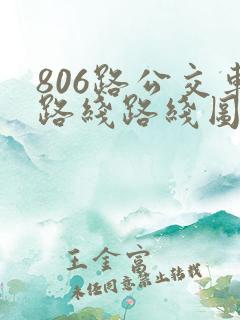 806路公交車
路綫路綫圖
王金富
未经同意禁止转载